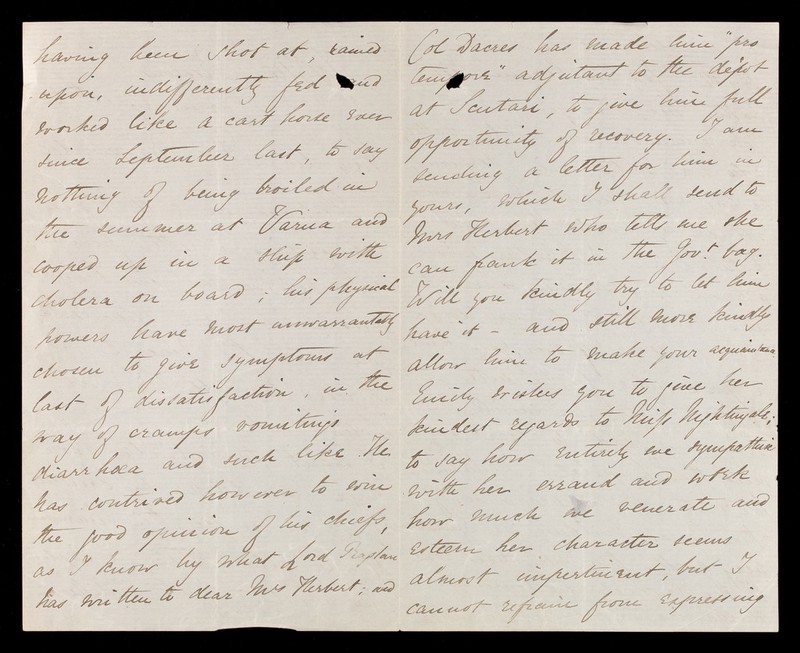 having been shot at, rained
upon, indifferently fed and
worked like a cart horse ever
since September last, to say
nothing of being broiled in
the summer at Varna and
cooped up in a ship with
cholera on board; his physical
powers have most unwarrantably
chosen to give symptoms at
last of dissatisfaction, in the
way of cramps vomitings
diarrhœa and such like. He
has contrived however to win
the good opinion of his chiefs,
as I know by what Lord
has written to dear Mrs Herbert; and
Col Dacres has made him "pro
tempore" adjutant to the depôt
at Scutari, to give him full
opportunity of recovery. I am
sending a letter for him in
yours, which I shall send to
Mrs Herbert who tells me she
can frank it in the Govt. bag.
Will you kindly try to let him
have it - and still more kindly
allow him to make your acquaintance
Emily wishes you to give her
kindest regards to Miss Nightingale;
to say how entirely we sympathise
with her errand and work
how much we venerate and
esteem her character seems
almost impertinent, but I
cannot refrain from expressing